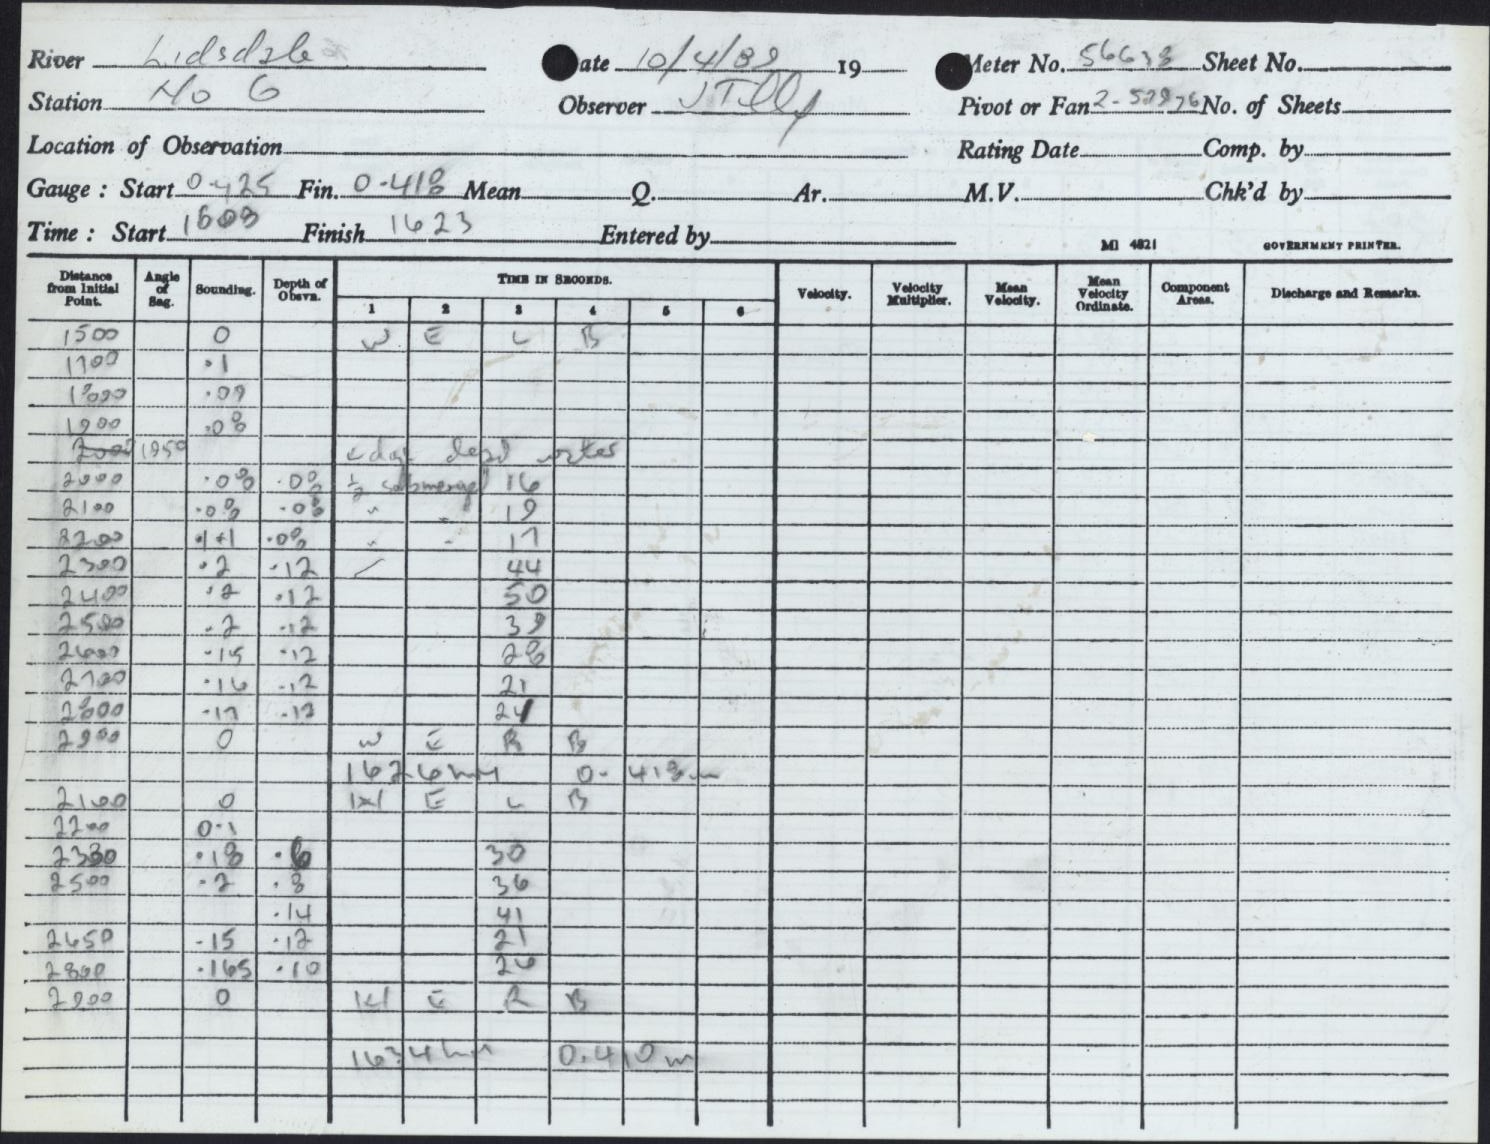 River Lidsdale Date 10/4/89 19 Meter No. 56638 Sheet No.
Station No 6 Observer J Tilly Pivot or Fan 2-52976 No. of Sheets
Location of Observation Rating Date Comp. by
Gauge : Start 0.425 Fin. 0.418 Mean Q. Ar. M.V. Chk'd by
Time : Start Finish 1623 Entered by MI 4821 GOVERNMENT PRINTER.
Distance from Initial Point. Angle of Sag. Sounding. Depth of Obsvn. TIME IN SECONDS. Velocity. Velocity Multiplier. Mean Velocity. Mean Velocity Ordinate. Component Areas. Discharge and Remarks.
1 2 3 4 5 6
1500 0 W E L B
1700 .1
1800 .09
1900 .08
2000 1950 edge dead water
2000 .08 .08 ½ submerged 16
2100 .08 .08 " " 19
2200 .1+1 .08 " " 17
2300 .2 .12 / 44
2400 .2 .12 50
2500 .2 .12 39
2600 .15 .12 28
2700 .16 .12 21
2800 .17 .12 24
2900 0 W E R B
1626 hrs 0.418 m
2100 0 W E L B
2200 0.1
2330 .18 .6 30
2500 .2 .8 36
.14 41
2650 .15 .12 21
2800 .165 .10 26
2900 0 W E R B
1634 hrs 0.410 m